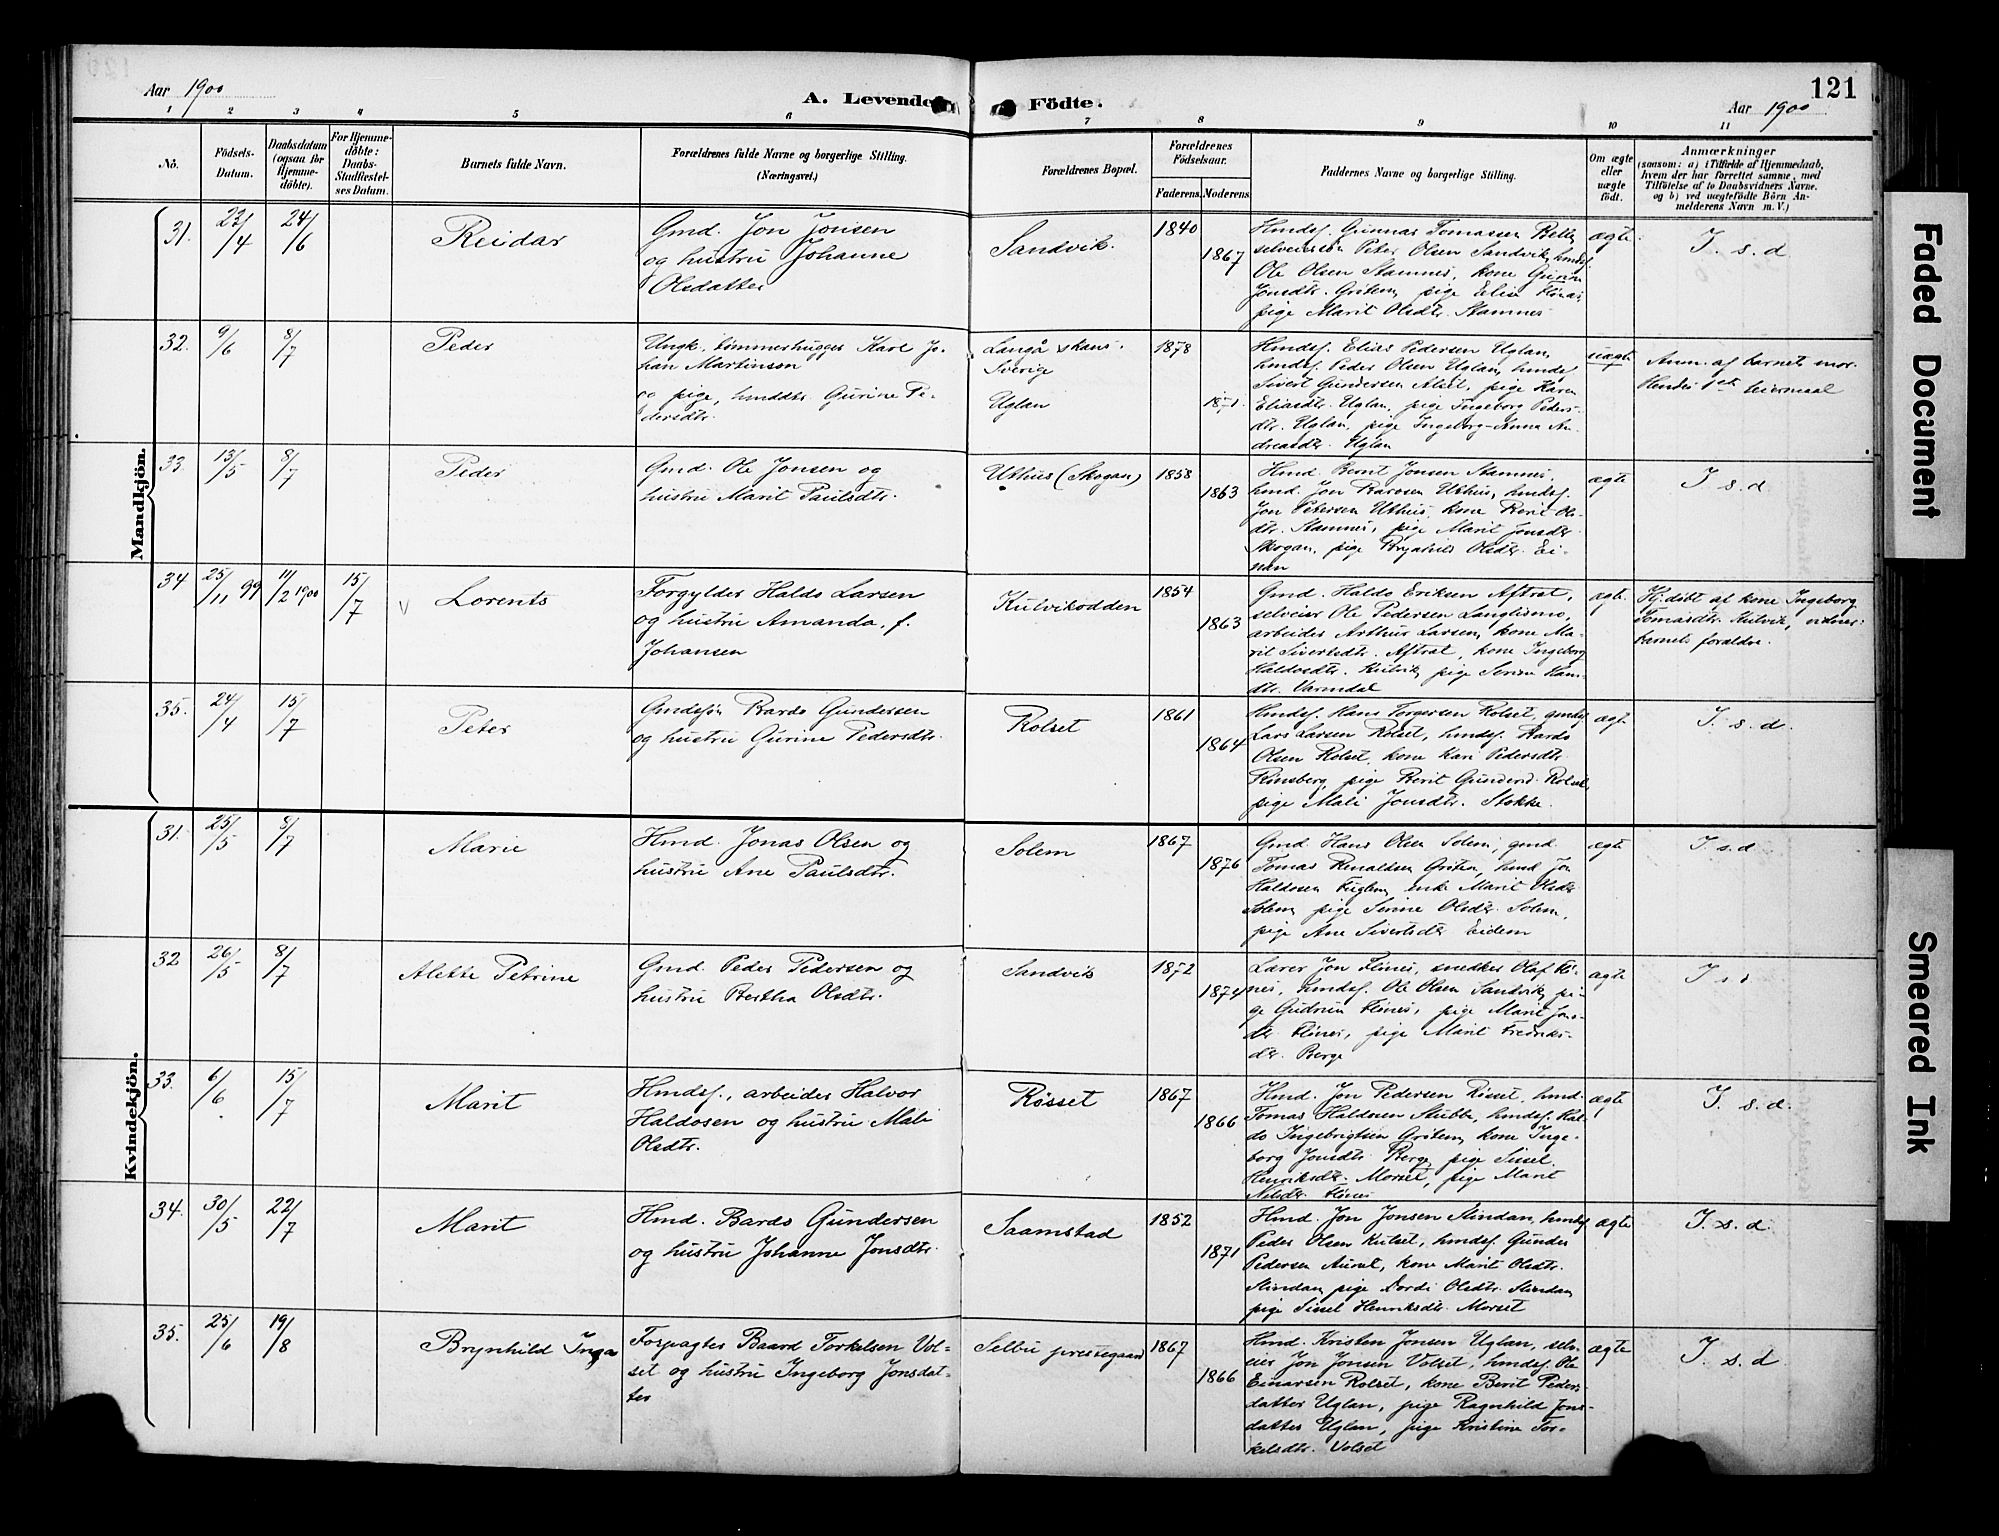 121
Aar 1900
A. Levende Födte.
Aar 1900
1 2 3 4 5 6 7 8 9 10 11
No.
Födsels-
Datum.
Daabsdatum
(ogsaa for
Hjemme-
döbte).
For Hjemme-
döbte:
Daabs-
Stadfæstel-
ses Datum.
Barnets fulde Navn.
Forældrenes fulde Navne og borgerlige Stilling.
(Næringsvei.)
Forældrenes Bopæl.
Forældrenes
Födselsaar.
Faderens. Moderens.
Faddernes Navne og borgerlige Stilling.
Om ægte
eller
uægte
födt.
Anmærkninger
(saasom: a) i Tilfælde af Hjemmedaab,
hvem der har forrettet samme, med
Tilföielse af to Daabsvidners Navne,
og b) ved uægtefödte Börn An-
melderens Navn m. V.)
Mandkjön.
31. 22/4 24/6
Reidar
Gmd. Jon Jonsen
og hustru Johanne
Olsdatter
Sandvik.
1840
1867
Hmdsf. Gunnar Tomassen
selveiersøn Peter Olsen Sandvik, hmdsf.
Ole Olsen Stamnes, kone Guru
Jonsdtr. Gritem, pige Elise Flønæs,
pige Marit Olsdtr. Stamnes
ægte.
I. s. d
32. 9/6 8/7
Peder
Ungk. tømmerhugger Karl Jo-
han Martinson
og pige, hmddtr. Gurine Pe-
dersdtr.
Langå skans.
Sverige
Uglan
1878
1871.
Hmdsf. Elias Pedersen Uglan,
hmdsf. Peder Olsen Uglan, hmdsf
Sivert Gundersen Alset, pige Karen
Eliasdtr. Uglan, pige Ingeborg Peders-
dtr. Uglan, pige Ingeborg-Anna An-
dreasdtr. Uglan
uægte
Anm. af barnets mor.
Hendes 1ste leiermaal
33. 13/5 8/7
Peder
Gmd. Ole Jonsen og
hustru Marit Paulsdtr.
Uthus (Skogan)
1858
1863
Hmd. Bernt Jonsen Stamnes,
hmd. Jon Bardsen Uthus, hmdsf.
Jon Petersen Uthus, kone Berit Ols-
dtr. Stamnes, pige Marit Jonsdtr.
Skogan, pige Olsdtr. Ei-
nan
ægte
I s. d.
34 25/11 99 11/2 1900 15/7
Lorents
Forgylder Haldo Larsen
og hustru Amanda, f.
Johansen
Kulvikodden
1854
1863
Gmd. Haldo Eriksen Aftret,
selveier Ole Pedersen Langlismo,
arbeider Arthur Larsen, kone Ma-
rit Sivertsdtr. Aftret, kone Ingeborg
Haldosdtr. Kulvik, pige Serine Hans-
dtr. Varmdal
ægte.
Hj.døbt af kone Ingeborg
Tomasdtr. Kulvik, vidner:
barnets forældre.
35. 24/4 15/7
Peter
Gmdssøn Bardo Gundersen
og hustru Gurine Pedersdtr.
Rolset
1861
1864
Hmdsf. Hans Torgersen Rolset, gmdsf
Lars Larsen Rolset, hmdsf. Bardo
Olsen Rolset, kone Kari Pedersdtr.
Rønsberg, pige Berit Gundersd. Rolset,
pige Mali Jonsdtr. Stokke.
ægte.
I. s. d.
Kvindekjön.
31. 25/5 8/7
Marie
Hmd. Jonas Olsen og
hustru Ane Paulsdtr.
Solem
1867
1876
Gmd. Hans Olsen Solem, gmd.
Tomas Renaldsen Gritem, hmd. Jon
Haldosen Fuglem, enke Marit Olsdtr.
Solem, pige Serine Olsdtr. Solem,
pige Ane Sivertsdtr Eidem
ægte
I. s. d
32 26/5 8/7
Alette Petrine
Gmd. Peder Pedersen og
hustru Bertha Olsdtr.
Sandvik
1872
1874
Lærer Jon Flønes, snedker Olaf Flø-
nes, hmdsf. Ole Olsen Sandvik, pi-
ge Gudrun Flønes, pige Marit Jons-
dtr. Flønes, pige Marit Fredriks-
dtr. Berge
ægte
I s. d.
33. 6/6 15/7
Marit
Hmdsf., arbeider Halvor
Haldosen og hustru Mali
Olsdtr.
Røsset
1867
1866
Hmd. Jon Pedersen Røsset, hmd.
Tomas Haldosen Stubbe, hmdsf. Hal-
do Ingebrigtsen Gritem, kone Inge-
borg Jonsdtr. Berge, pige Sissel
Henriksdtr. Morset, pige Marit
Nilsdtr. Flønes
ægte
I. s. d.
34. 30/5 22/7
Marit
Hmd. Bardo Gundersen
og hustru Johanne Jonsdtr.
Saamstad
1852
1871
Hmd. Jon Jonsen Stindan, hmdsf
Peder Olsen Kulset, hmdsf. Gunder
Pedersen Aunet, kone Marit Olsdtr.
Stindan, pige Dordi Olsdtr. Stindan,
pige Sissel Henriksdtr. Morset
ægte
I. s. d.
35. 25/6 19/8
Brynhild Inga
Forpagter Baard Torkelsen Vol-
set og hustru Ingeborg Jonsdat-
ter
Selbu prestegaard
1867
1866
Hmd. Kristen Jonsen Uglan, selv-
eier Jon Jonsen Volset, hmdsf. Ole
Einarsen Rolset, kone Berit Peders-
datter Uglan, pige Ragnhild Jons-
datter Uglan, pige Kristine Tor-
kelsdtr. Volset
ægte
I. s. d.
Faded Document
Smeared Ink